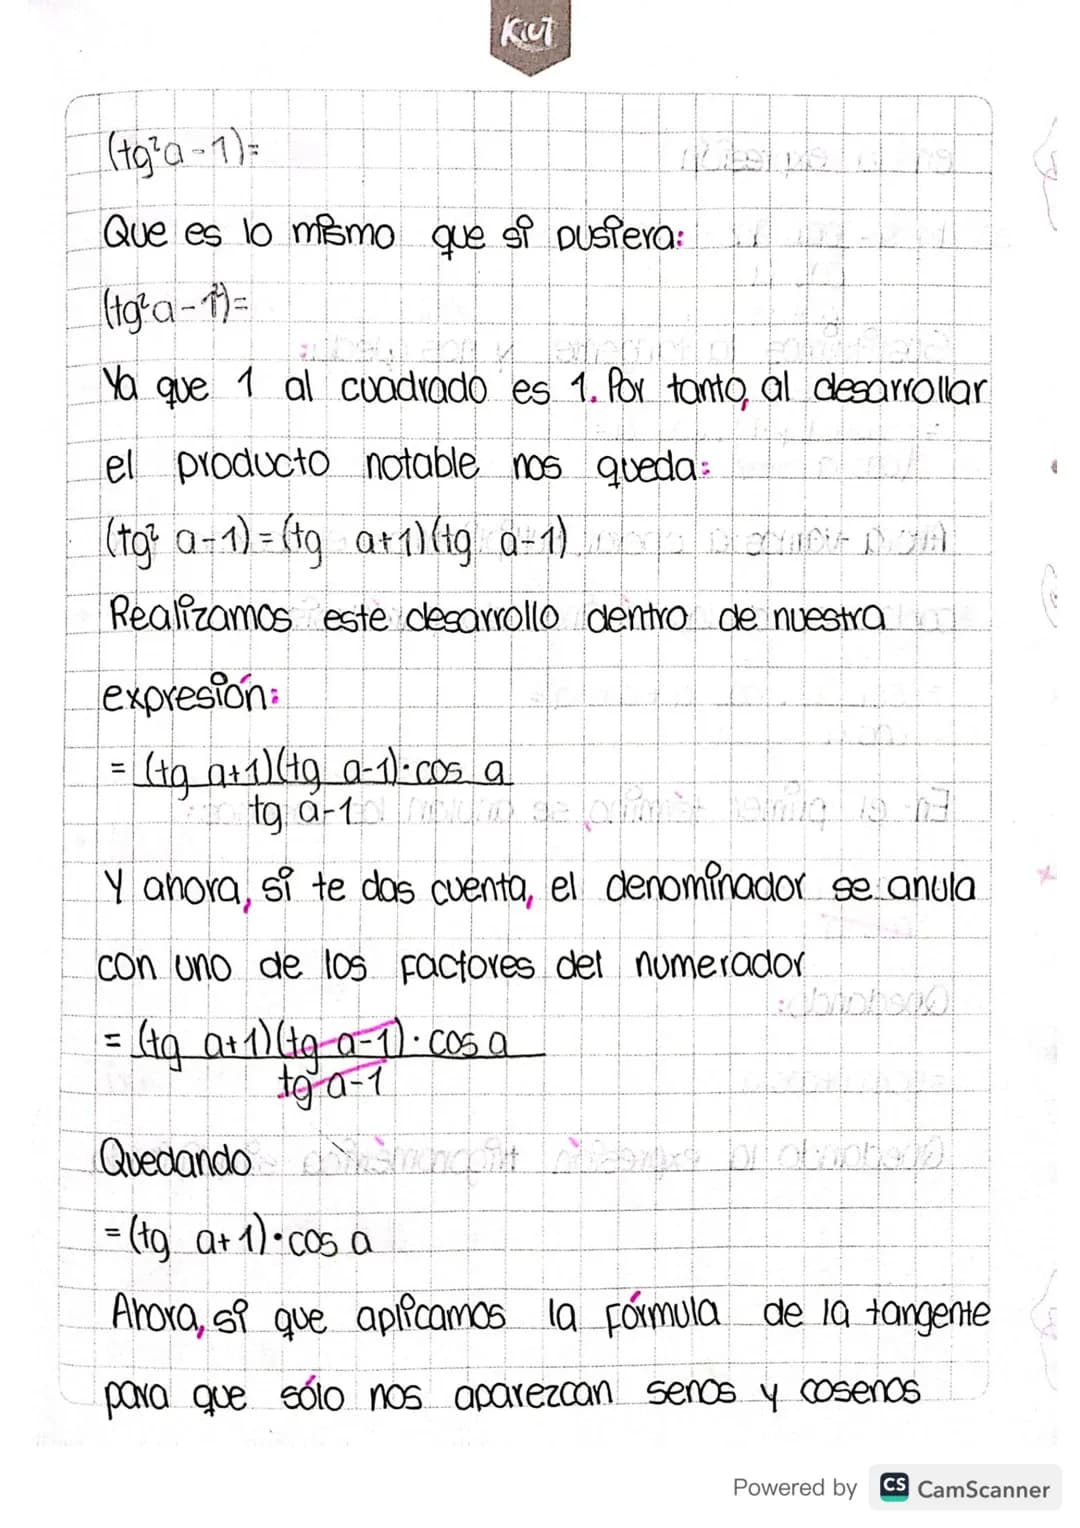 Kiut
(tg²a-1)=
Que es lo mismo que si pusiera:
(tg²a-1²)=
Ya que 1 al cuadrado es 1. Por tanto, al desarrollar
el producto notable nos queda:
(tg² a-1)=(tg a+1)(tg a-1)
Realizamos este desarrollo dentro de nuestra
expresión:
= (tg a+1)(tg a-1)·cos a
tg a-1
Y ahora, si te das cuenta, el denominador se anula
con uno de los factores del numerador
= (tg a+1)(tg a-1)·cos a
tg a-1
Quedando
=(tg a+1)·cos a
Ahora, si que aplicamos la fórmula de la tangente
para que sólo nos aparezcan senos y cosenos
Powered by CS CamScanner